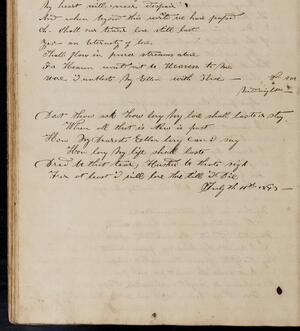 My heart will neer despair
And when beyond this world we have passed
Oh. shall our tender love still last
For an Eternity of love
Shall flow in purer streams above
For Heaven would not be Heaven to me
Were I without My Ellen with Thee
Dost thou ask how long my love shall last or stay
When all that is this is past
How My Dearest Ellen long can I say
How long my life shall last
Dried be that tear, Hushed be that sigh
For at least I will love thee till I Die
July th 10th 1853